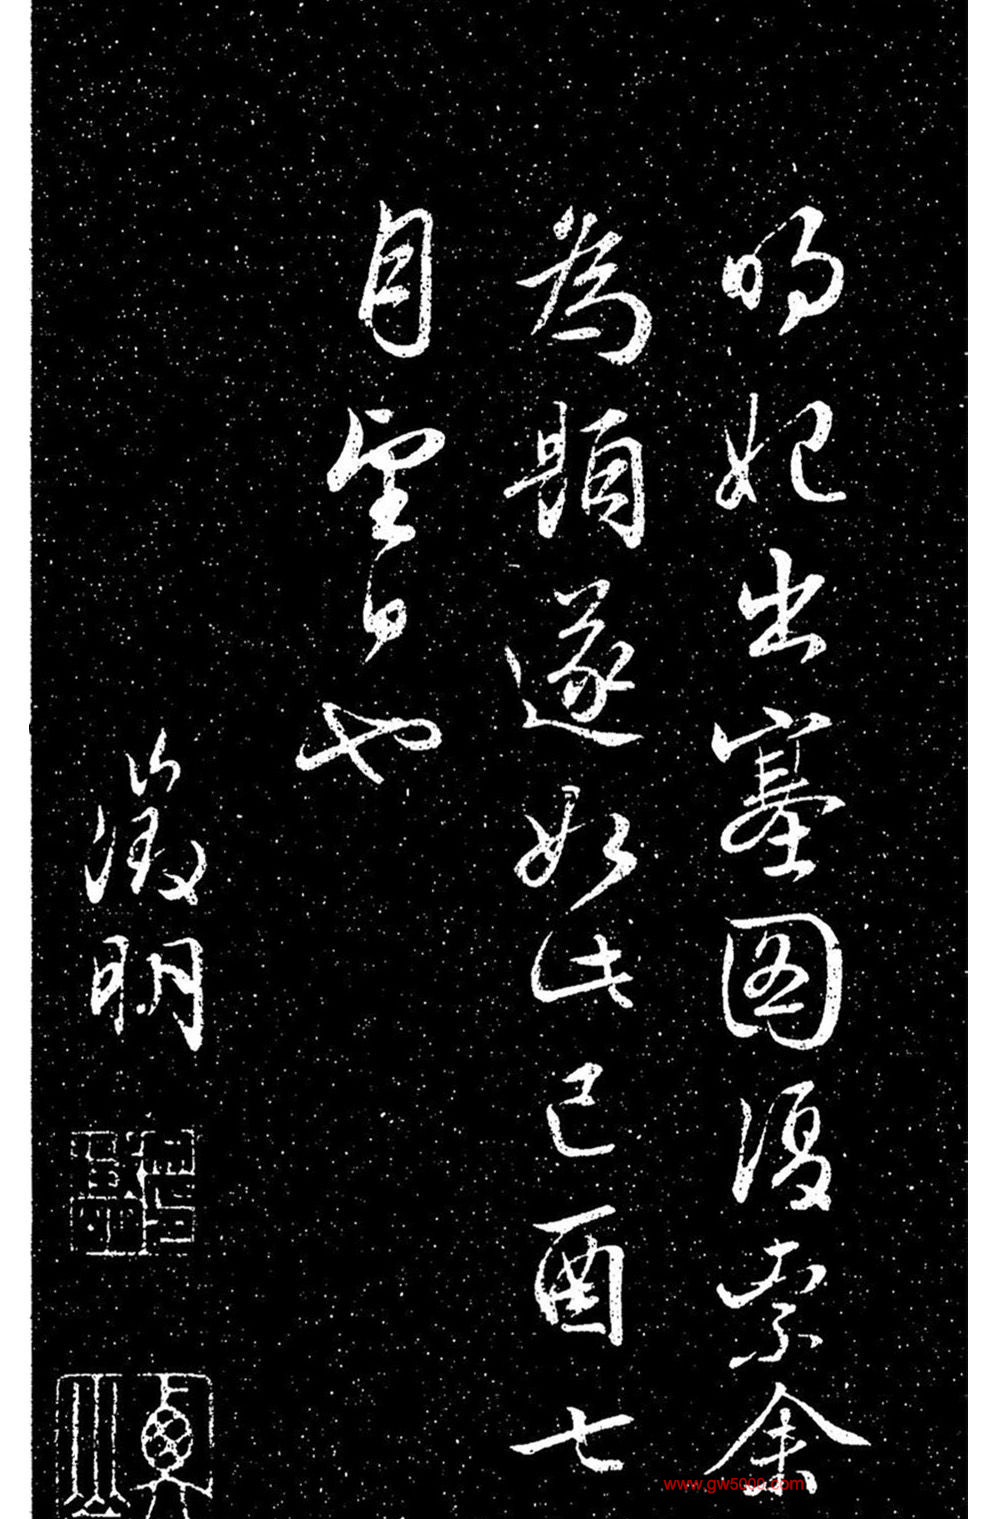 明妃出塞图復索余
為題遂此己酉七
月望日也
徵明
www.gw5000.com